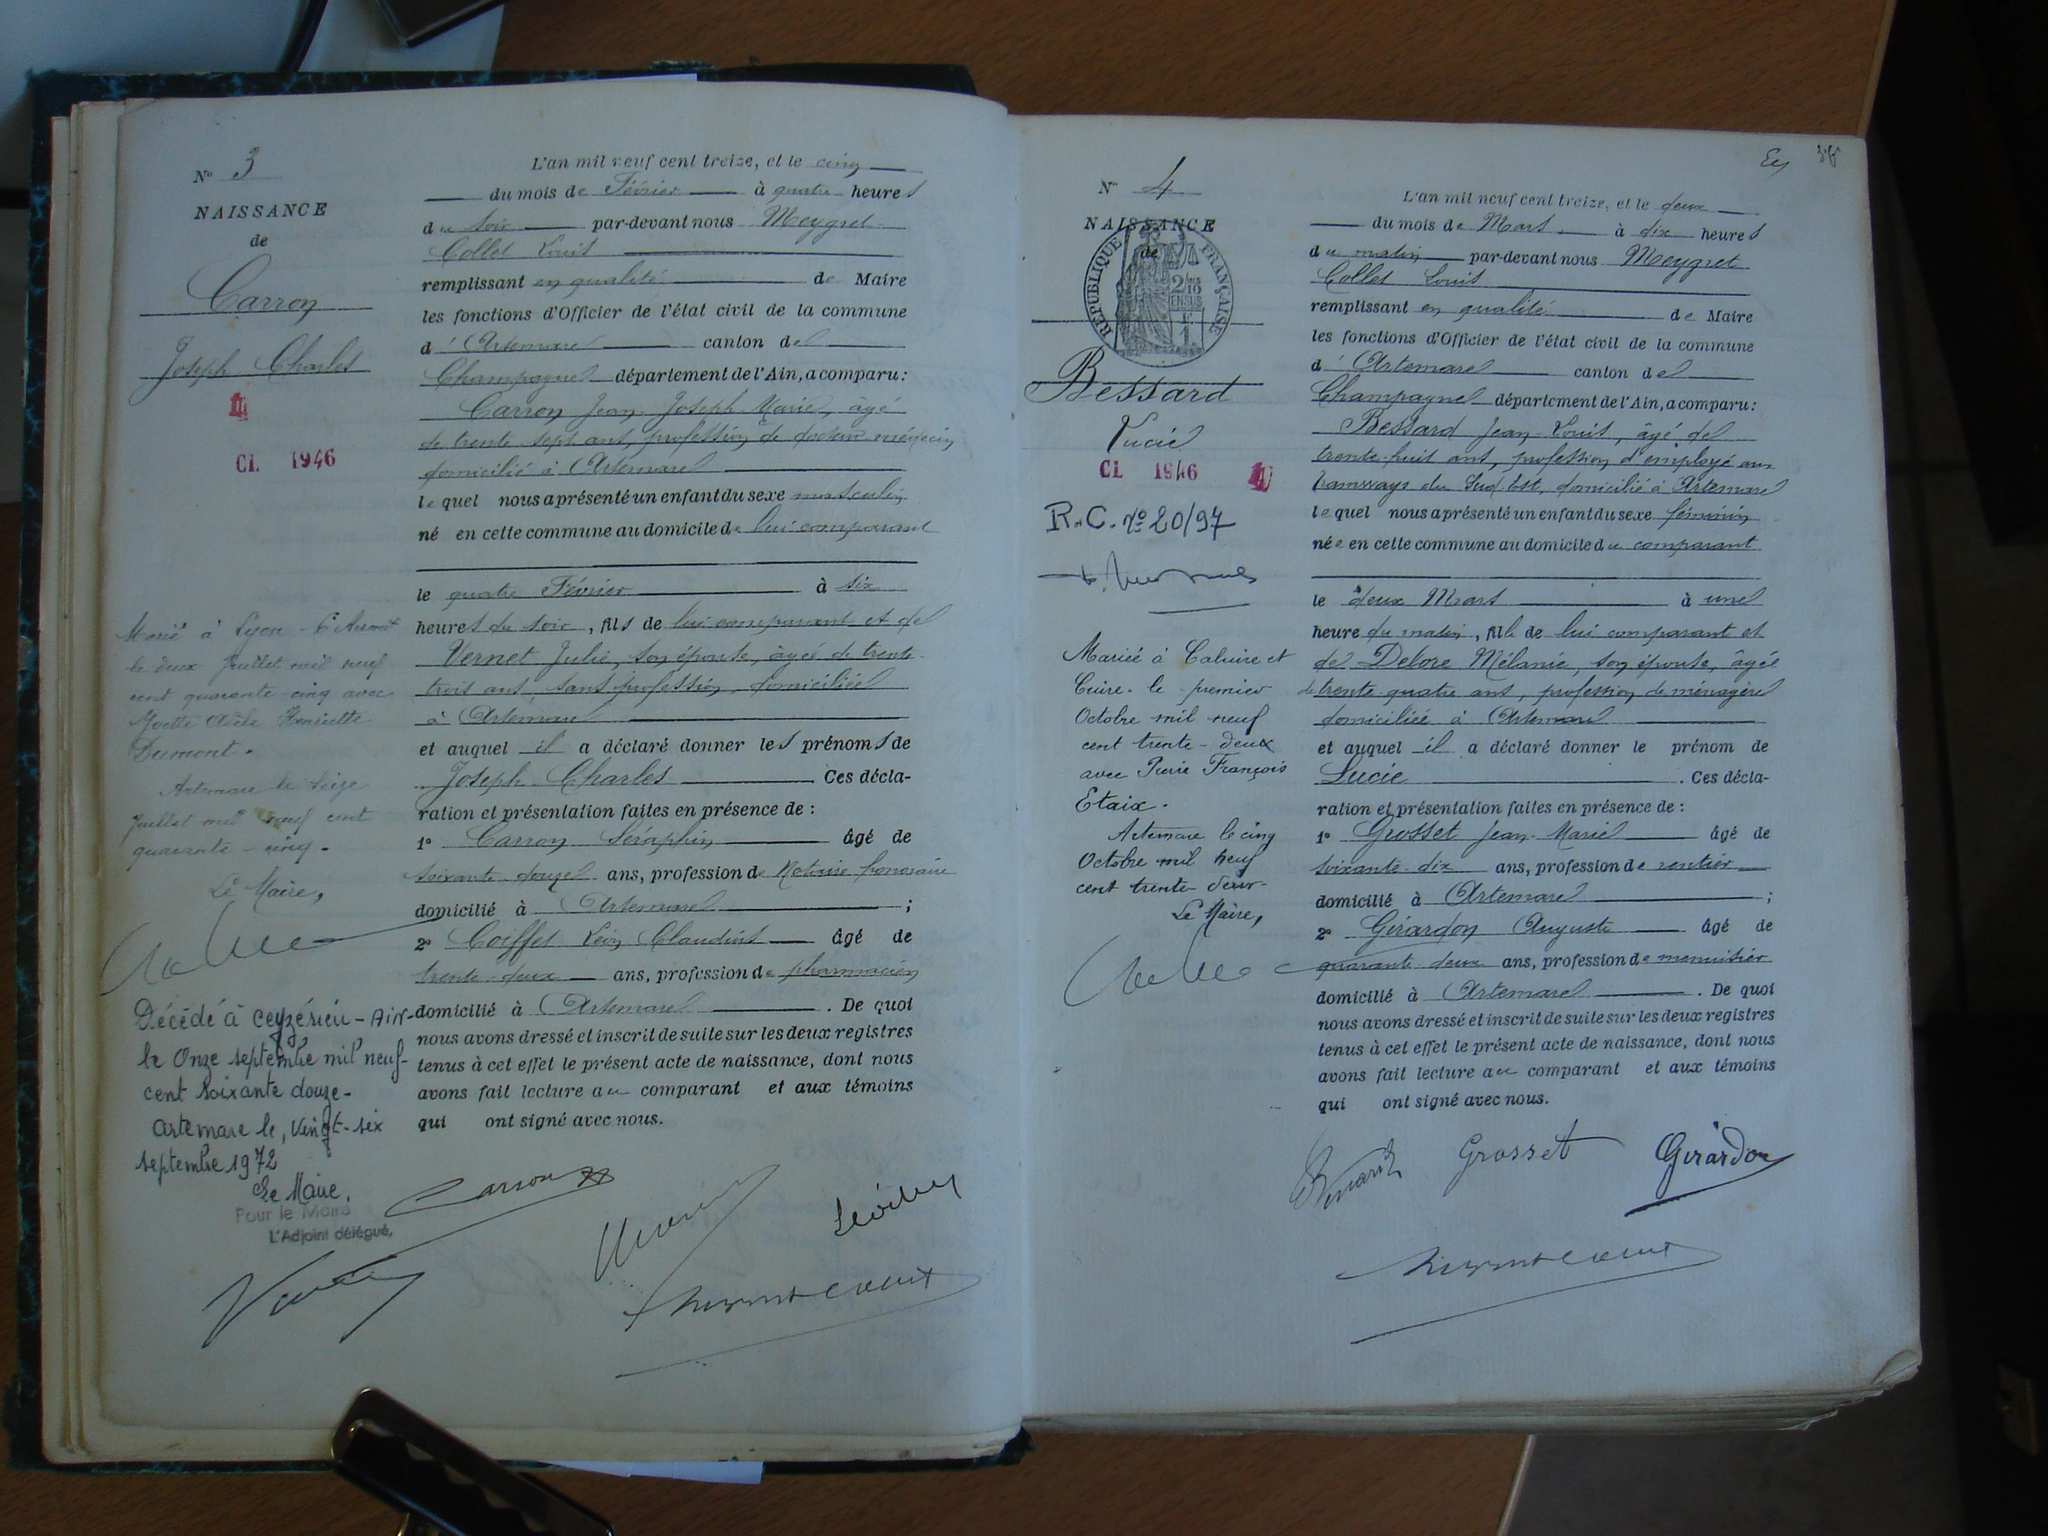 N° 3
NAISSANCE
de
Carron
Joseph Charles
CL 1946
Marié à Lyon - 6e Arrondt
le deux Juillet mil neuf
cent quarante-cinq avec
Yvette Henriette
Dumont.
Artemare le seize
Juillet mil neuf cent
quarante-cinq.
Le Maire,
Décédé à Ceyzérieu - Ain -
le Onze septembre mil neuf-
cent soixante douze -
Artemare le, vingt-six
septembre 1972
Le Maire,
Pour le Maire
L'Adjoint délégué,
L'an mil neuf cent treize, et le cinq
du mois de Février à quatre heures
du soir par-devant nous Meygret
Collet Louis
remplissant en qualité de Maire
les fonctions d'Officier de l'état civil de la commune
d'Artemare canton de
Champagne département de l'Ain, a comparu :
Carron Jean Joseph Marie, âgé
de trente sept ans, profession de docteur médecin
domicilié à Artemare
lequel nous a présenté un enfant du sexe masculin
né en cette commune au domicile de lui comparant
le quatre Février à six
heures du soir, fils de lui comparant et de
Vernet Julie, son épouse, âgée de trente
trois ans, sans profession, domiciliée
à Artemare
et auquel il a déclaré donner les prénoms de
Joseph Charles Ces décla-
ration et présentation faites en présence de :
1° Carron Séraphin âgé de
soixante douze ans, profession de Notaire honoraire
domicilié à Artemare ;
2° Coiffet Léon Claudius âgé de
trente-deux ans, profession de pharmacien
domicilié à Artemare . De quoi
nous avons dressé et inscrit de suite sur les deux registres
tenus à cet effet le présent acte de naissance, dont nous
avons fait lecture au comparant et aux témoins
qui ont signé avec nous.
Carron
N° 4
NAISSANCE
de
RÉPUBLIQUE FRANÇAISE
Bessard
Lucie
CL 1946
R.C. N° 20/97
Mariée à Caluire et
Cuire le premier
Octobre mil neuf
cent trente-deux
avec Pierre François
Etaix.
Artemare le cinq
Octobre mil neuf
cent trente deux-
Le Maire,
L'an mil neuf cent treize, et le deux
du mois de Mars à dix heures
du matin par-devant nous Meygret
Collet Louis
remplissant en qualité de Maire
les fonctions d'Officier de l'état civil de la commune
d'Artemare canton de
Champagne département de l'Ain, a comparu :
Bessard Jean Louis, âgé de
trente-huit ans, profession d'employé aux
tramways du Sud-Est, domicilié à Artemare
lequel nous a présenté un enfant du sexe féminin
née en cette commune au domicile du comparant
le deux Mars à une
heure du matin, fille de lui comparant et
de Delore Mélanie, son épouse, âgée
de trente-quatre ans, profession de ménagère
domiciliée à Artemare
et auquel il a déclaré donner le prénom de
Lucie . Ces décla-
ration et présentation faites en présence de :
1° Grosset Jean-Marie âgé de
soixante-dix ans, profession de rentier
domicilié à Artemare ;
2° Girardon Auguste âgé de
quarante deux ans, profession de menuisier
domicilié à Artemare . De quoi
nous avons dressé et inscrit de suite sur les deux registres
tenus à cet effet le présent acte de naissance, dont nous
avons fait lecture au comparant et aux témoins
qui ont signé avec nous.
Bessard Grosset Girardon